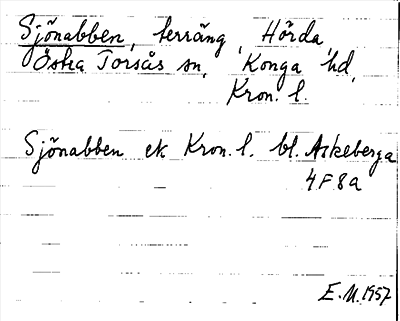 Sjönabben, terräng, Hörda,
Östra Torsås sn, Konga hd,
Kron. l.
Sjönabben ek Kron. l. bl. Askeberga
4F8a
E.M. 1957